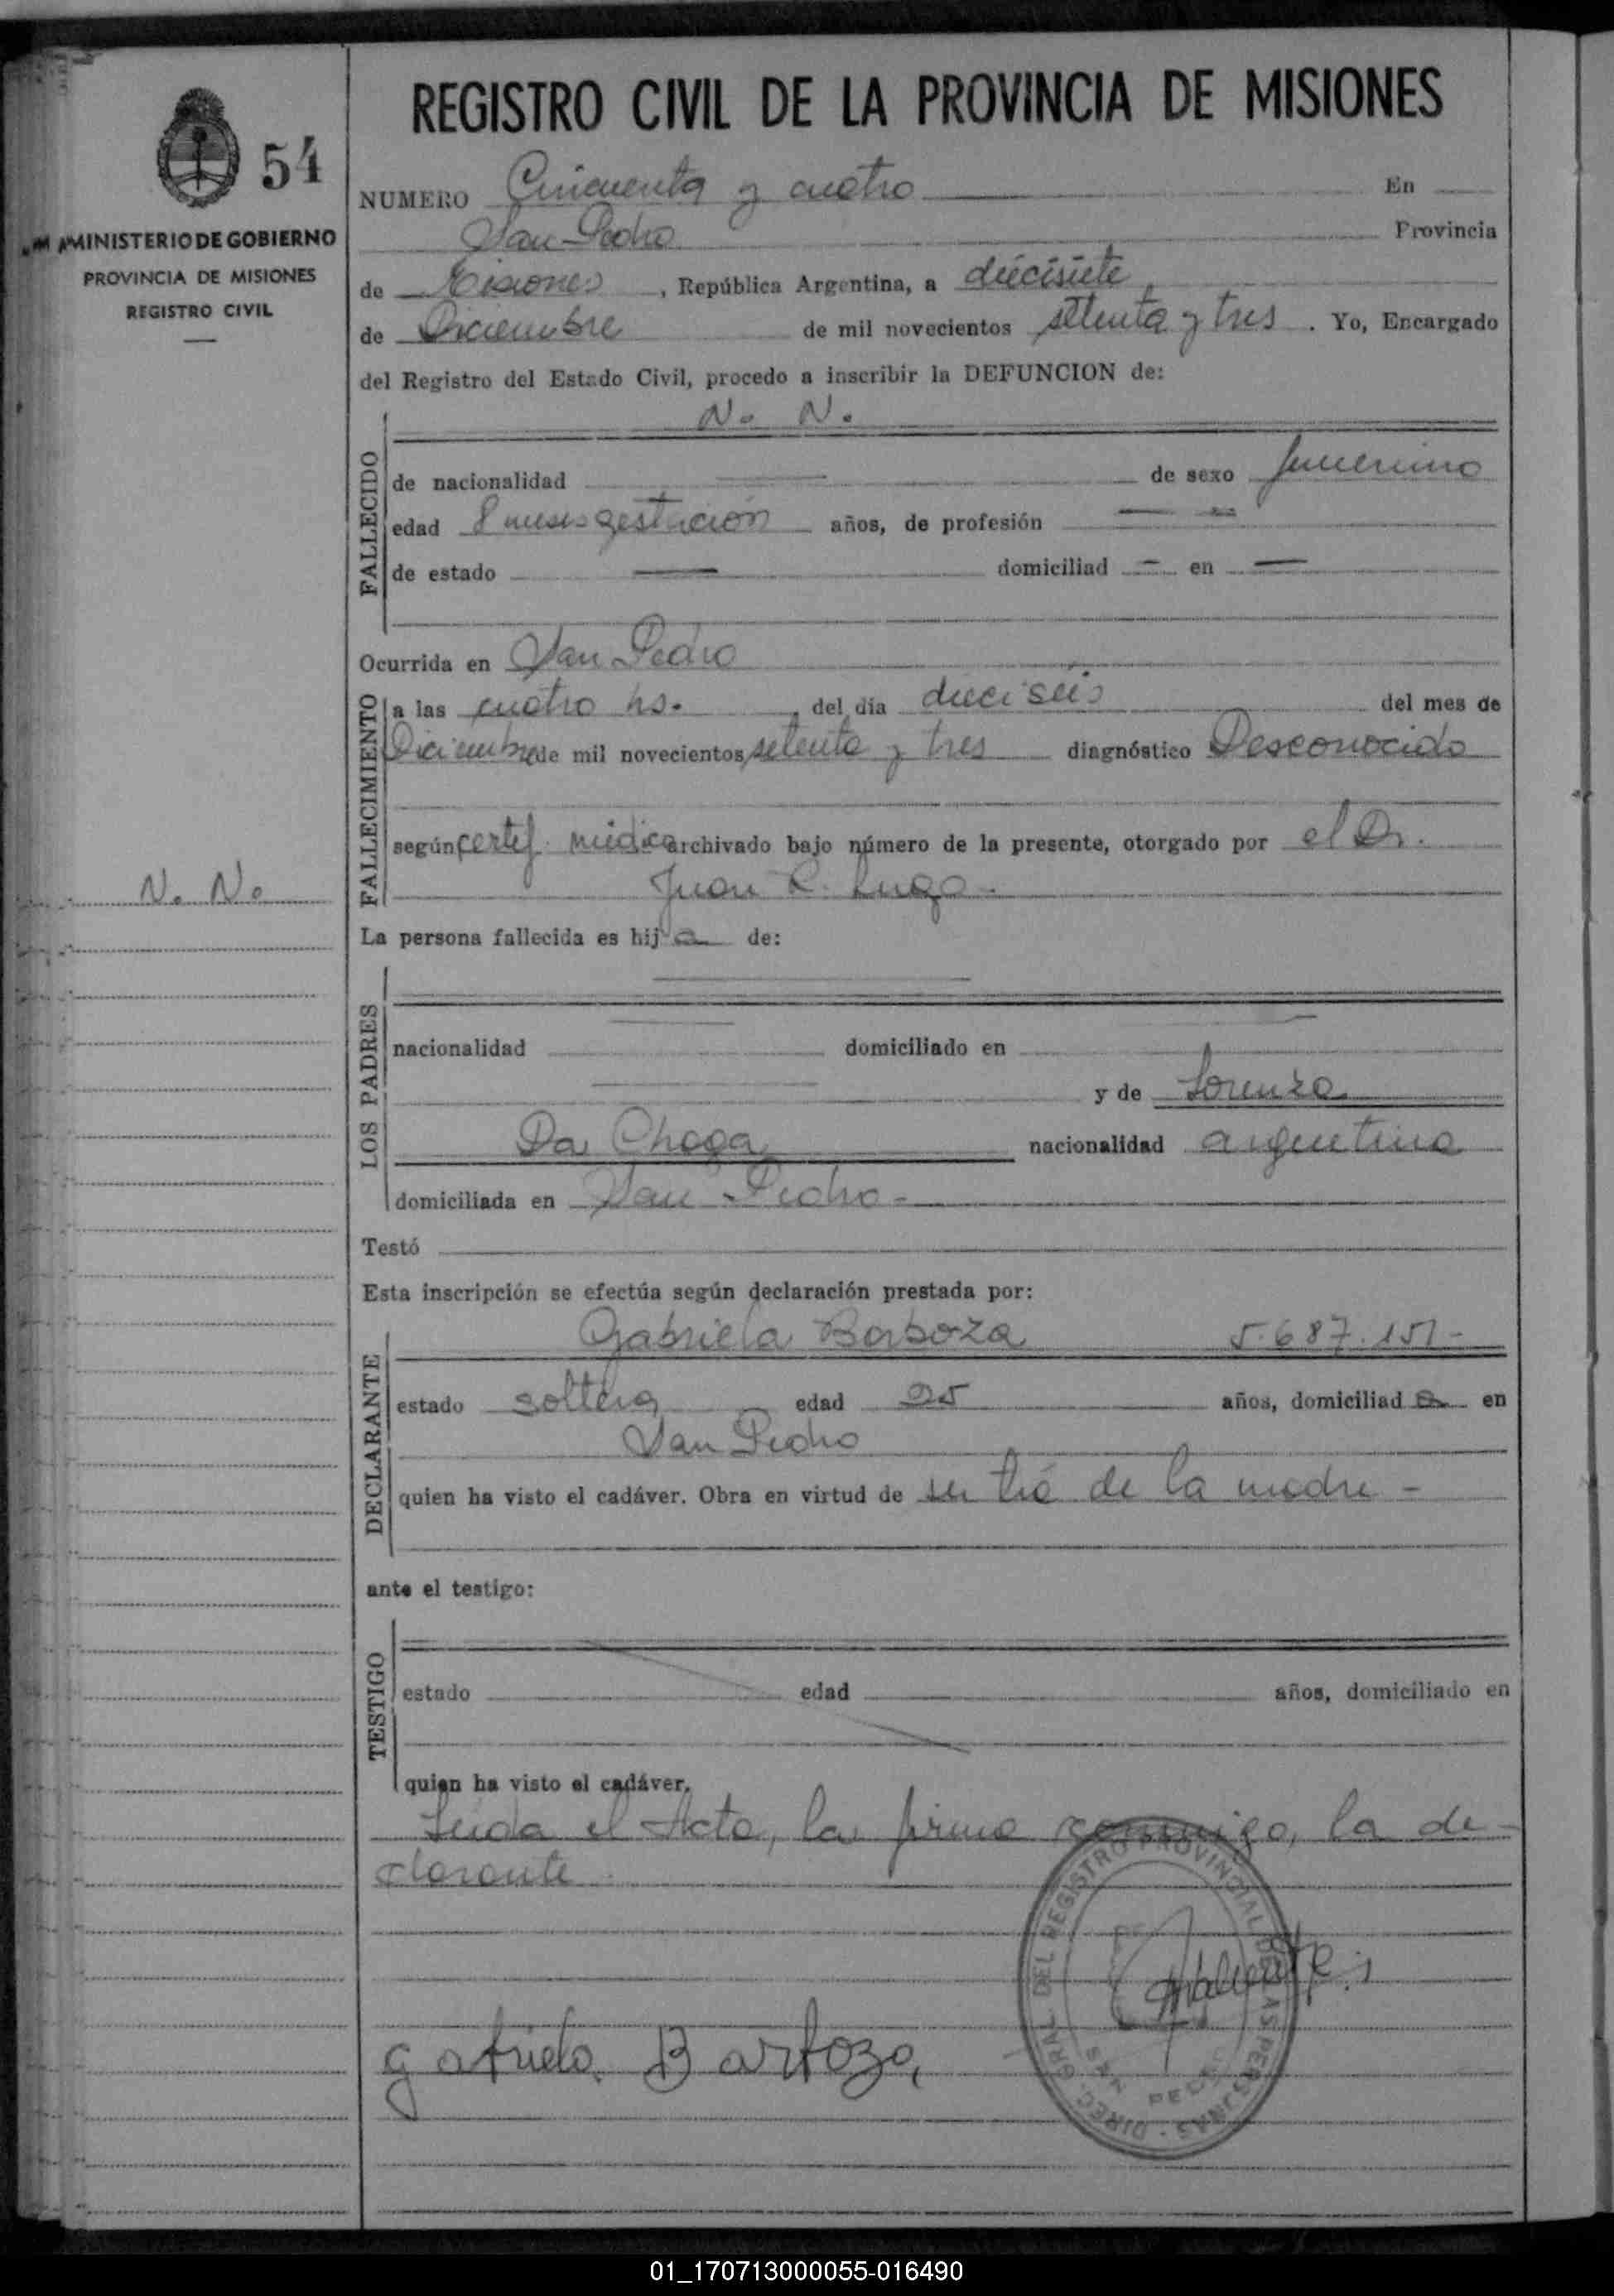 REGISTRO CIVIL DE LA PROVINCIA DE MISIONES
54
MINISTERIO DE GOBIERNO
PROVINCIA DE MISIONES
REGISTRO CIVIL
N. N.
NUMERO Cincuenta y cuatro En
San Pedro Provincia
de Misiones, República Argentina, a diecisiete
de Diciembre de mil novecientos setenta y tres. Yo, Encargado
del Registro del Estado Civil, procedo a inscribir la DEFUNCION de:
N. N.
FALLECIDO
de nacionalidad — de sexo femenino
edad 8 meses gestación años, de profesión — —
de estado — domiciliad — en —
Ocurrida en San Pedro
FALLECIMIENTO
a las cuatro hs. del día dieciseis del mes de
Diciembre de mil novecientos setenta y tres diagnóstico Desconocido
según certif. médico archivado bajo número de la presente, otorgado por el Dr.
Juan R. Lugo.
La persona fallecida es hija de:
LOS PADRES
nacionalidad — domiciliado en —
y de Lorenza
Da Chaga nacionalidad argentina
domiciliada en San Pedro-
Testó
Esta inscripción se efectúa según declaración prestada por:
DECLARANTE
Gabriela Barboza 5.687.151-
estado soltera edad 25 años, domiciliada en
San Pedro
quien ha visto el cadáver. Obra en virtud de ser tía de la madre -
ante el testigo:
TESTIGO
estado edad años, domiciliado en
quien ha visto el cadáver.
Leída el Acta, la firma conmigo, la de-
clarante
DIREC. GRAL. DEL REGISTRO PROVINCIAL DE LAS PERSONAS
SAN PEDRO
Gabriela Barboza
01_170713000055-016490